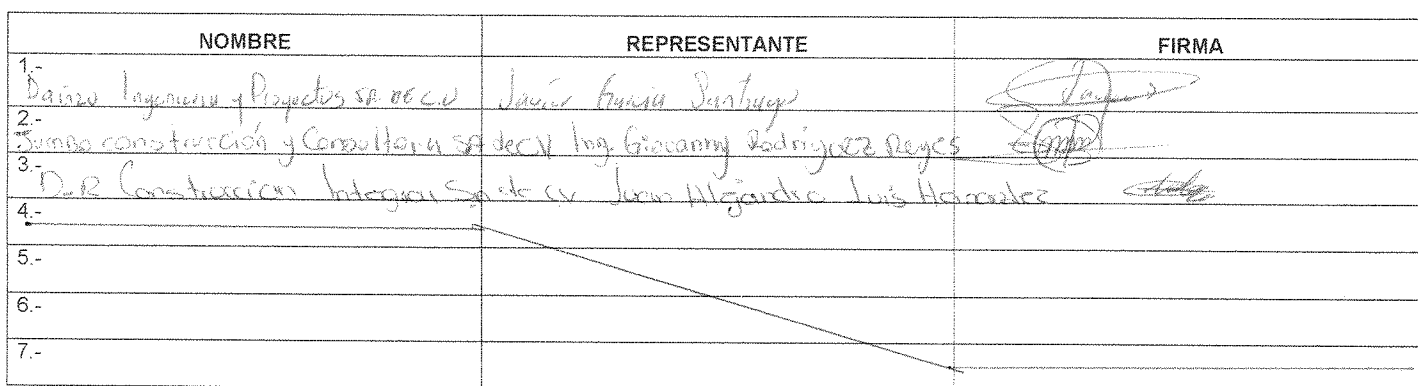 NOMBRE REPRESENTANTE FIRMA
1.-
Dainzu Ingenieria y Proyectos SA DE C.V Javier Garcia Santiago
2.-
Jumbo construcción y Consultoria SA de CV Ing. Giovanny Rodríguez Reyes
3.-
D-R Construccion Integral SA de CV Juan Alejandro Luis Hernandez
4.-
5.-
6.-
7.-